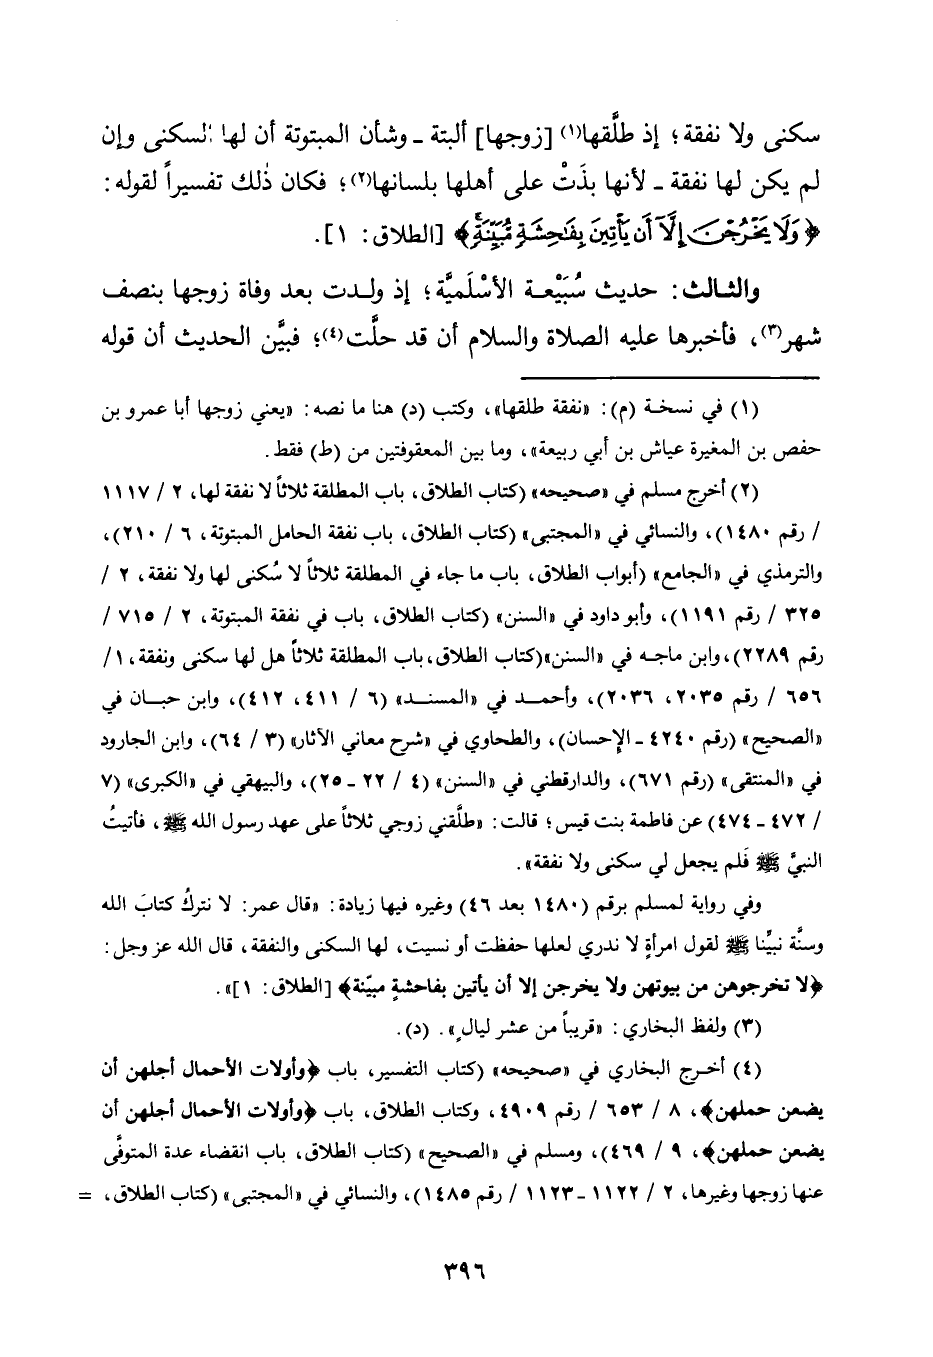 سكنى ولا نفقة؛ إذ طلَّقها(١) [زوجها] ألبتة ـ وشأن المبتوتة أن لها السكنى وإن
لم يكن لها نفقة ـ لأنها بذَتْ على أهلها بلسانها(٢)؛ فكان ذٰلك تفسيراً لقوله:
﴿وَلَا يَخْرُجْنَ إِلَّآ أَن يَأْتِينَ بِفَاحِشَةٍ مُّبَيِّنَةٍ﴾ [الطلاق: ١].
والثالث: حديث سُبَيْعة الأسْلَميَّة؛ إذ ولدت بعد وفاة زوجها بنصف
شهر(٣)، فأخبرها عليه الصلاة والسلام أن قد حلَّت(٤)؛ فبيَّن الحديث أن قوله
(١) في نسخة (م): «نفقة طلقها»، وكتب (د) هنا ما نصه: «يعني زوجها أبا عمرو بن
حفص بن المغيرة عياش بن أبي ربيعة»، وما بين المعقوفتين من (ط) فقط.
(٢) أخرج مسلم في «صحيحه» (كتاب الطلاق، باب المطلقة ثلاثاً لا نفقة لها، ٢ / ١١١٧
/ رقم ١٤٨٠)، والنسائي في «المجتبى» (كتاب الطلاق، باب نفقة الحامل المبتوتة، ٦ / ٢١٠)،
والترمذي في «الجامع» (أبواب الطلاق، باب ما جاء في المطلقة ثلاثاً لا سُكنى لها ولا نفقة، ٢ /
٣٢٥ / رقم ١١٩١)، وأبو داود في «السنن» (كتاب الطلاق، باب في نفقة المبتوتة، ٢ / ٧١٥ /
رقم ٢٢٨٩)، وابن ماجه في «السنن»(كتاب الطلاق، باب المطلقة ثلاثاً هل لها سكنى ونفقة، ١/
٦٥٦ / رقم ٢٠٣٥، ٢٠٣٦)، وأحمد في «المسند» (٦ / ٤١١، ٤١٢)، وابن حبان في
«الصحيح» (رقم ٤٢٤٠ ـ الإحسان)، والطحاوي في «شرح معاني الآثار» (٣ / ٦٤)، وابن الجارود
في «المنتقى» (رقم ٦٧١)، والدارقطني في «السنن» (٤ / ٢٢ ـ ٢٥)، والبيهقي في «الكبرى» (٧
/ ٤٧٢ ـ ٤٧٤) عن فاطمة بنت قيس؛ قالت: «طلَّقني زوجي ثلاثاً على عهد رسول الله ﷺ، فأتيتُ
النبيَّ ﷺ فَلم يجعل لي سكنى ولا نفقة».
وفي رواية لمسلم برقم (١٤٨٠ بعد ٤٦) وغيره فيها زيادة: «قال عمر: لا نتركُ كتابَ الله
وسنَّة نبيِّنا ﷺ لقول امرأةٍ لا ندري لعلها حفظت أو نسيت، لها السكنى والنفقة، قال الله عز وجل:
﴿لا تخرجوهن من بيوتهن ولا يخرجن إلا أن يأتين بفاحشةٍ مبيّنة﴾ [الطلاق: ١]».
(٣) ولفظ البخاري: «قريباً من عشر ليالٍ». (د).
(٤) أخرج البخاري في «صحيحه» (كتاب التفسير، باب ﴿وأولات الأحمال أجلهن أن
يضعن حملهن﴾، ٨ / ٦٥٣ / رقم ٤٩٠٩، وكتاب الطلاق، باب ﴿وأولات الأحمال أجلهن أن
يضعن حملهن﴾، ٩ / ٤٦٩)، ومسلم في «الصحيح» (كتاب الطلاق، باب انقضاء عدة المتوفَّى
عنها زوجها وغيرها، ٢ / ١١٢٢ ـ ١١٢٣ / رقم ١٤٨٥)، والنسائي في «المجتبى» (كتاب الطلاق، =
٣٩٦